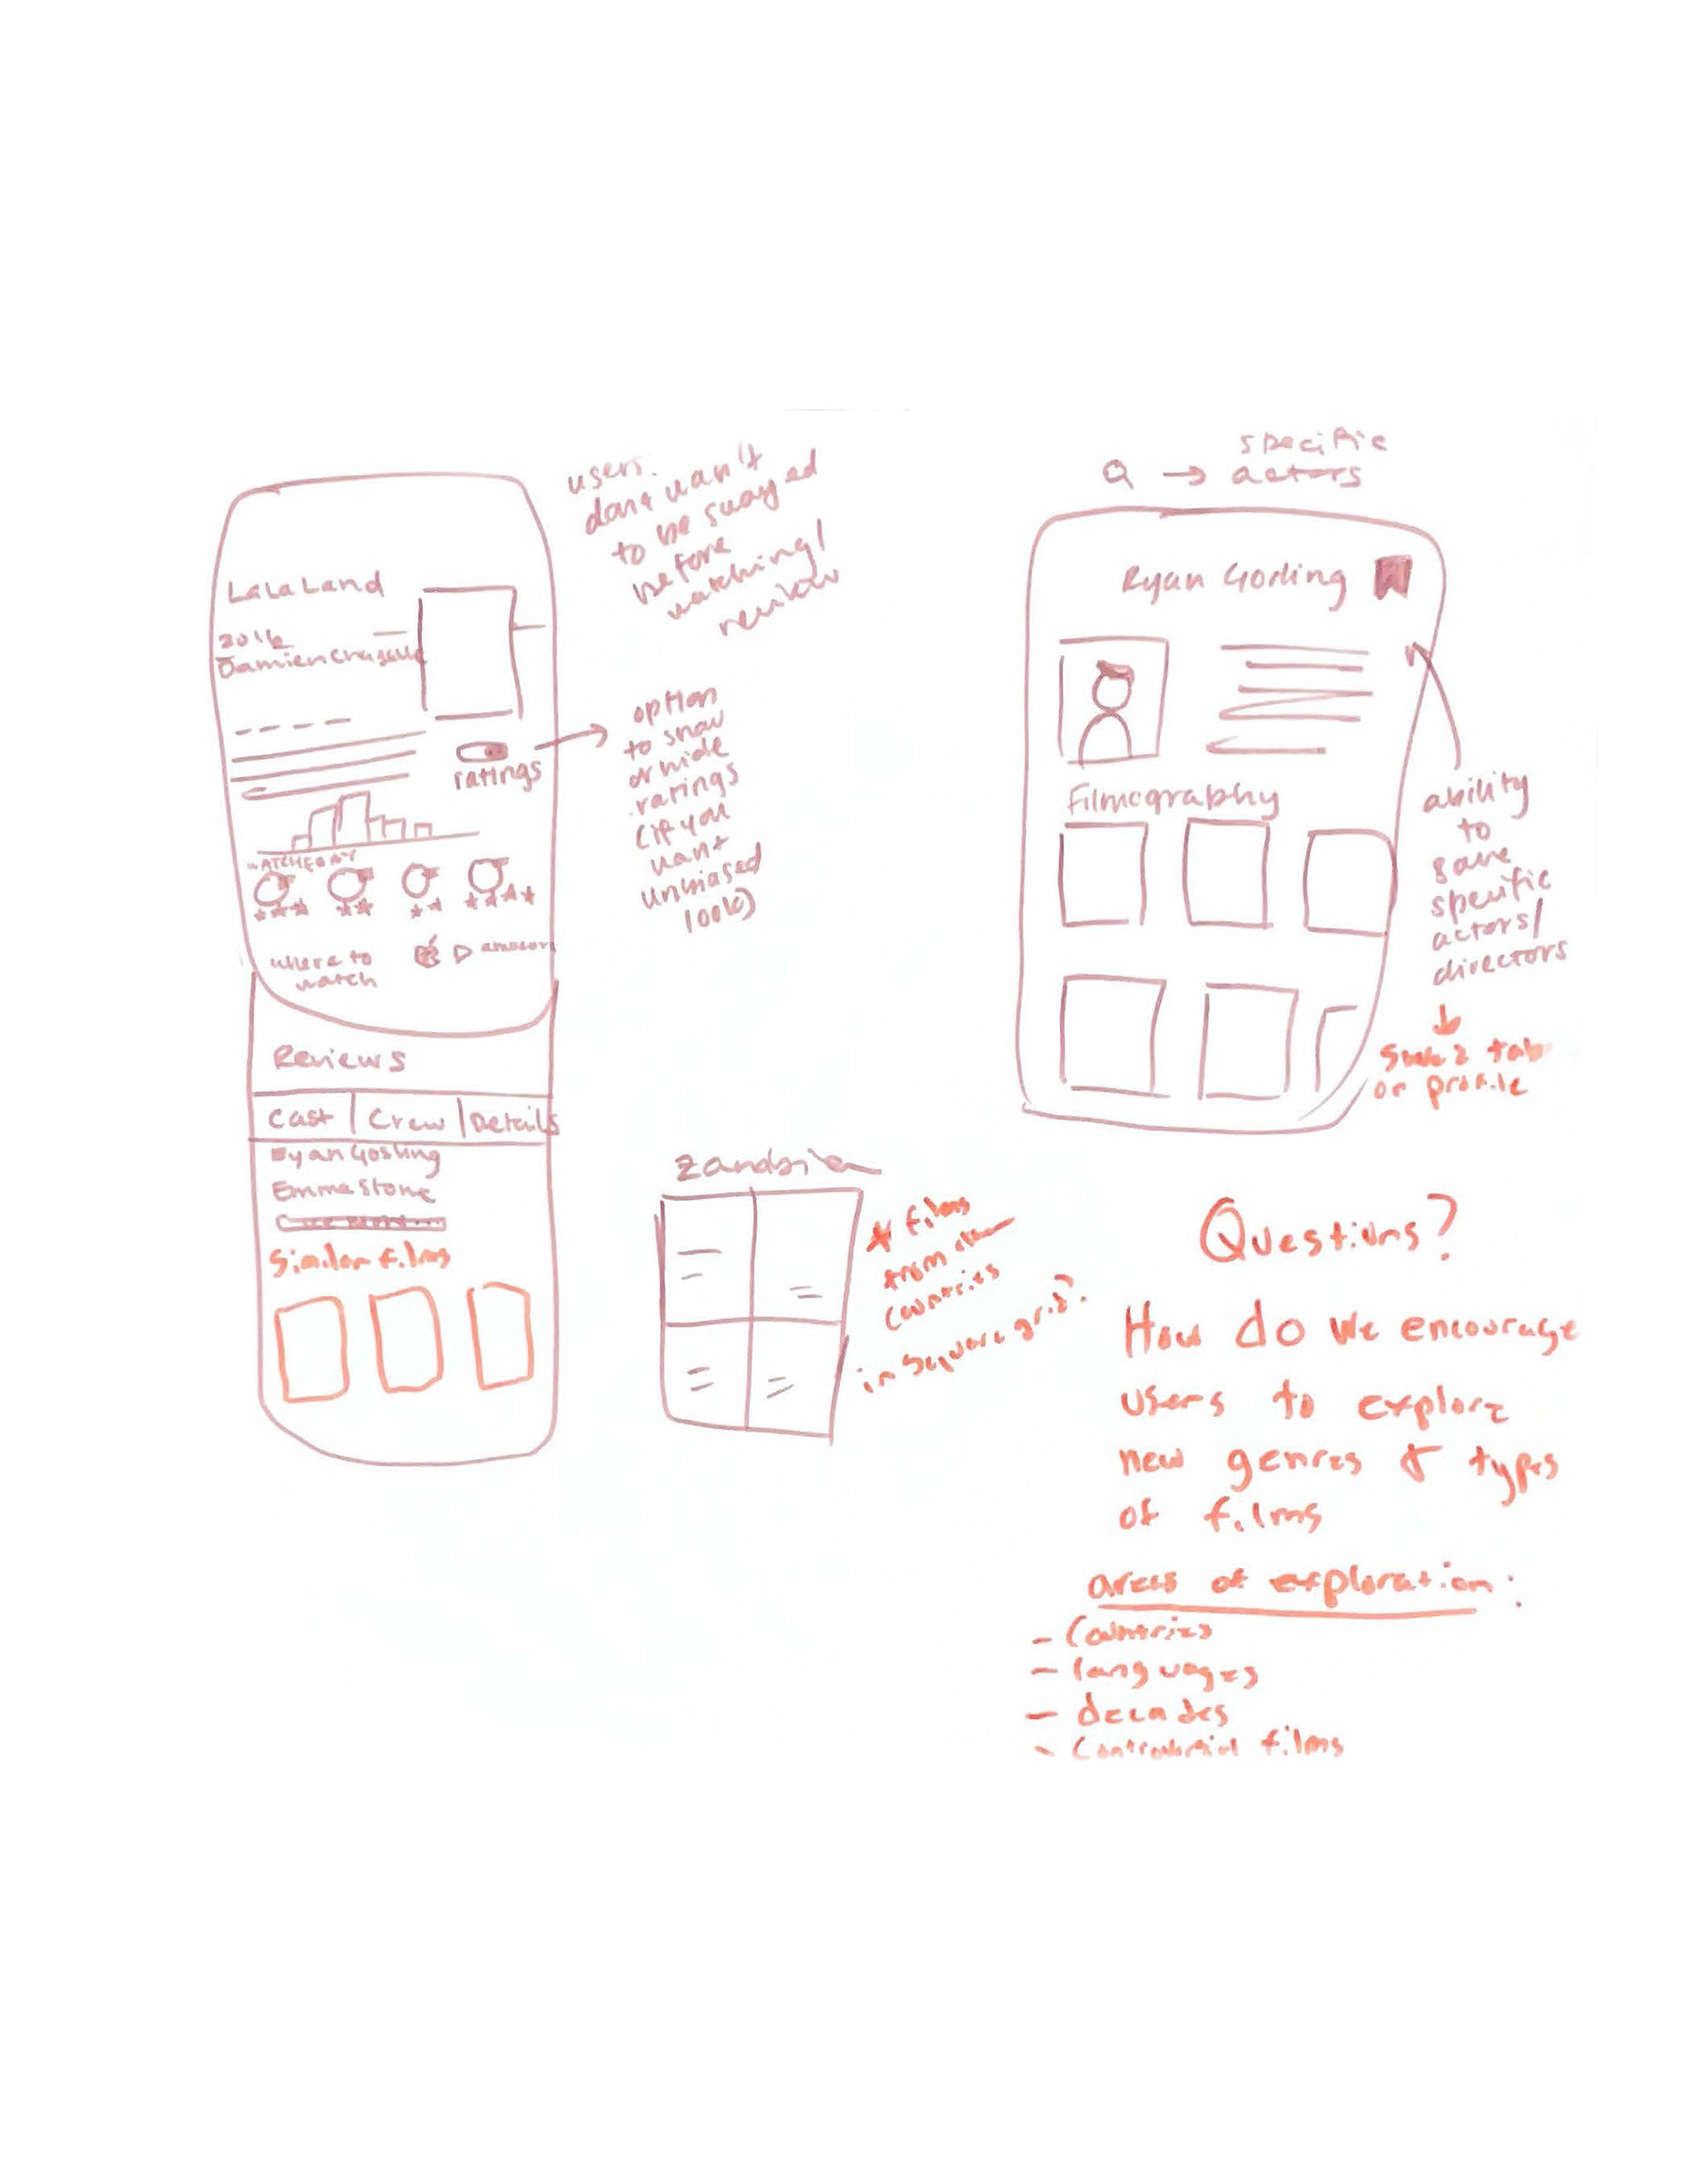 LaLaLand
2016
Damien Chazelle
ratings
WATCHED BY
where to
watch
amazon
Reviews
Cast | Crew | Details
Ryan Gosling
Emma Stone
Similar films
users.
don't want
to be swayed
before
watching/
review
option
to show
or hide
ratings
(if you
want
unbiased
look)
specific
actors
Ryan Gosling
Filmography
ability
to
save
specific
actors/
directors
tab
or profile
* films
from
countries
in square grid?
Questions?
How do we encourage
users to explore
new genres & types
of films
areas of exploration:
- Countries
- languages
- decades
- Controversial films